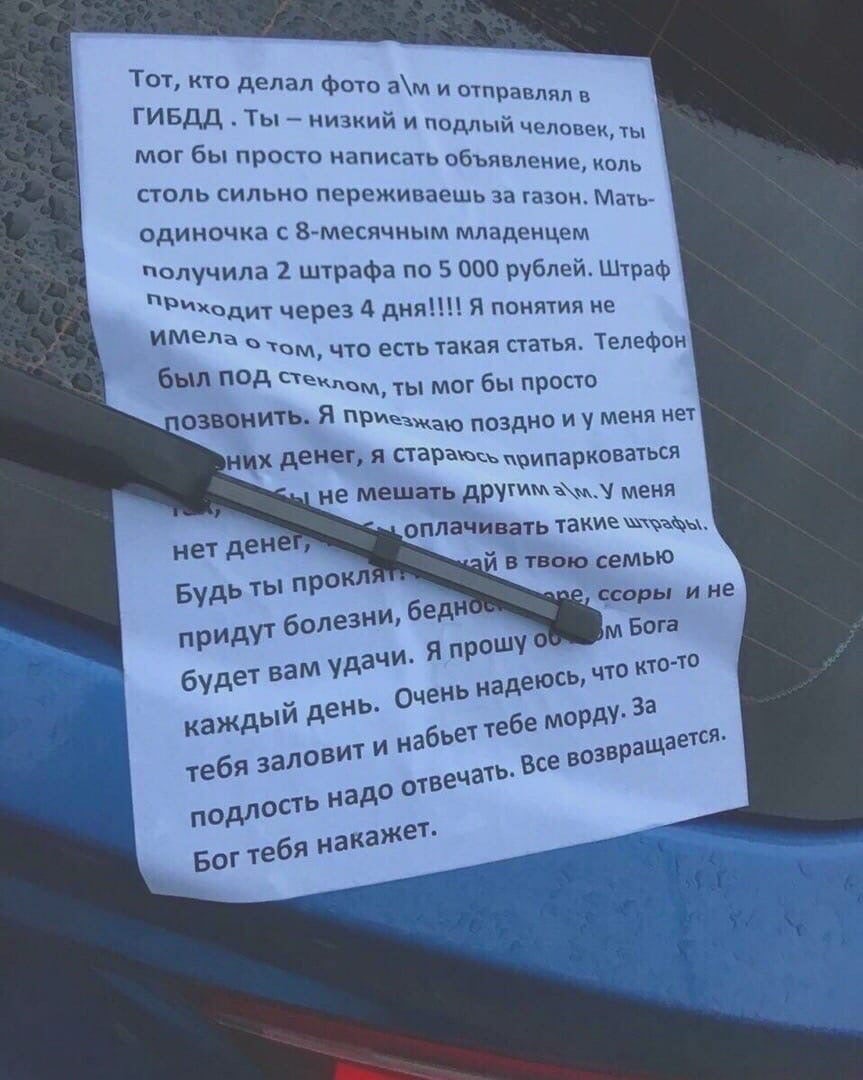 Тот, кто делал фото а\м и отправлял в
ГИБДД . Ты – низкий и подлый человек, ты
мог бы просто написать объявление, коль
столь сильно переживаешь за газон. Мать-
одиночка с 8-месячным младенцем
получила 2 штрафа по 5 000 рублей. Штраф
приходит через 4 дня!!!! Я понятия не
имела о том, что есть такая статья. Телефон
был под стеклом, ты мог бы просто
позвонить. Я приезжаю поздно и у меня нет
денег, я стараюсь припарковаться
не мешать другим а\м. У меня
нет денег, оплачивать такие штрафы.
Будь ты проклят! в твою семью
придут болезни, ссоры и не
будет вам удачи. Я прошу Бога
каждый день. Очень надеюсь, что кто-то
тебя заловит и набьет тебе морду. За
подлость надо отвечать. Все возвращается.
Бог тебя накажет.